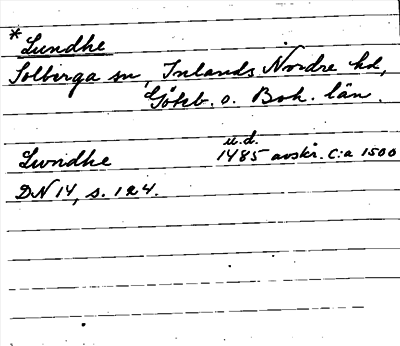 *Lundhe
Solberga sn, Inlands Nordre hd,
Göteb. o. Boh. län.
u.d.
Lwndhe 1485 avskr. c:a 1500
DN 14, s. 124.